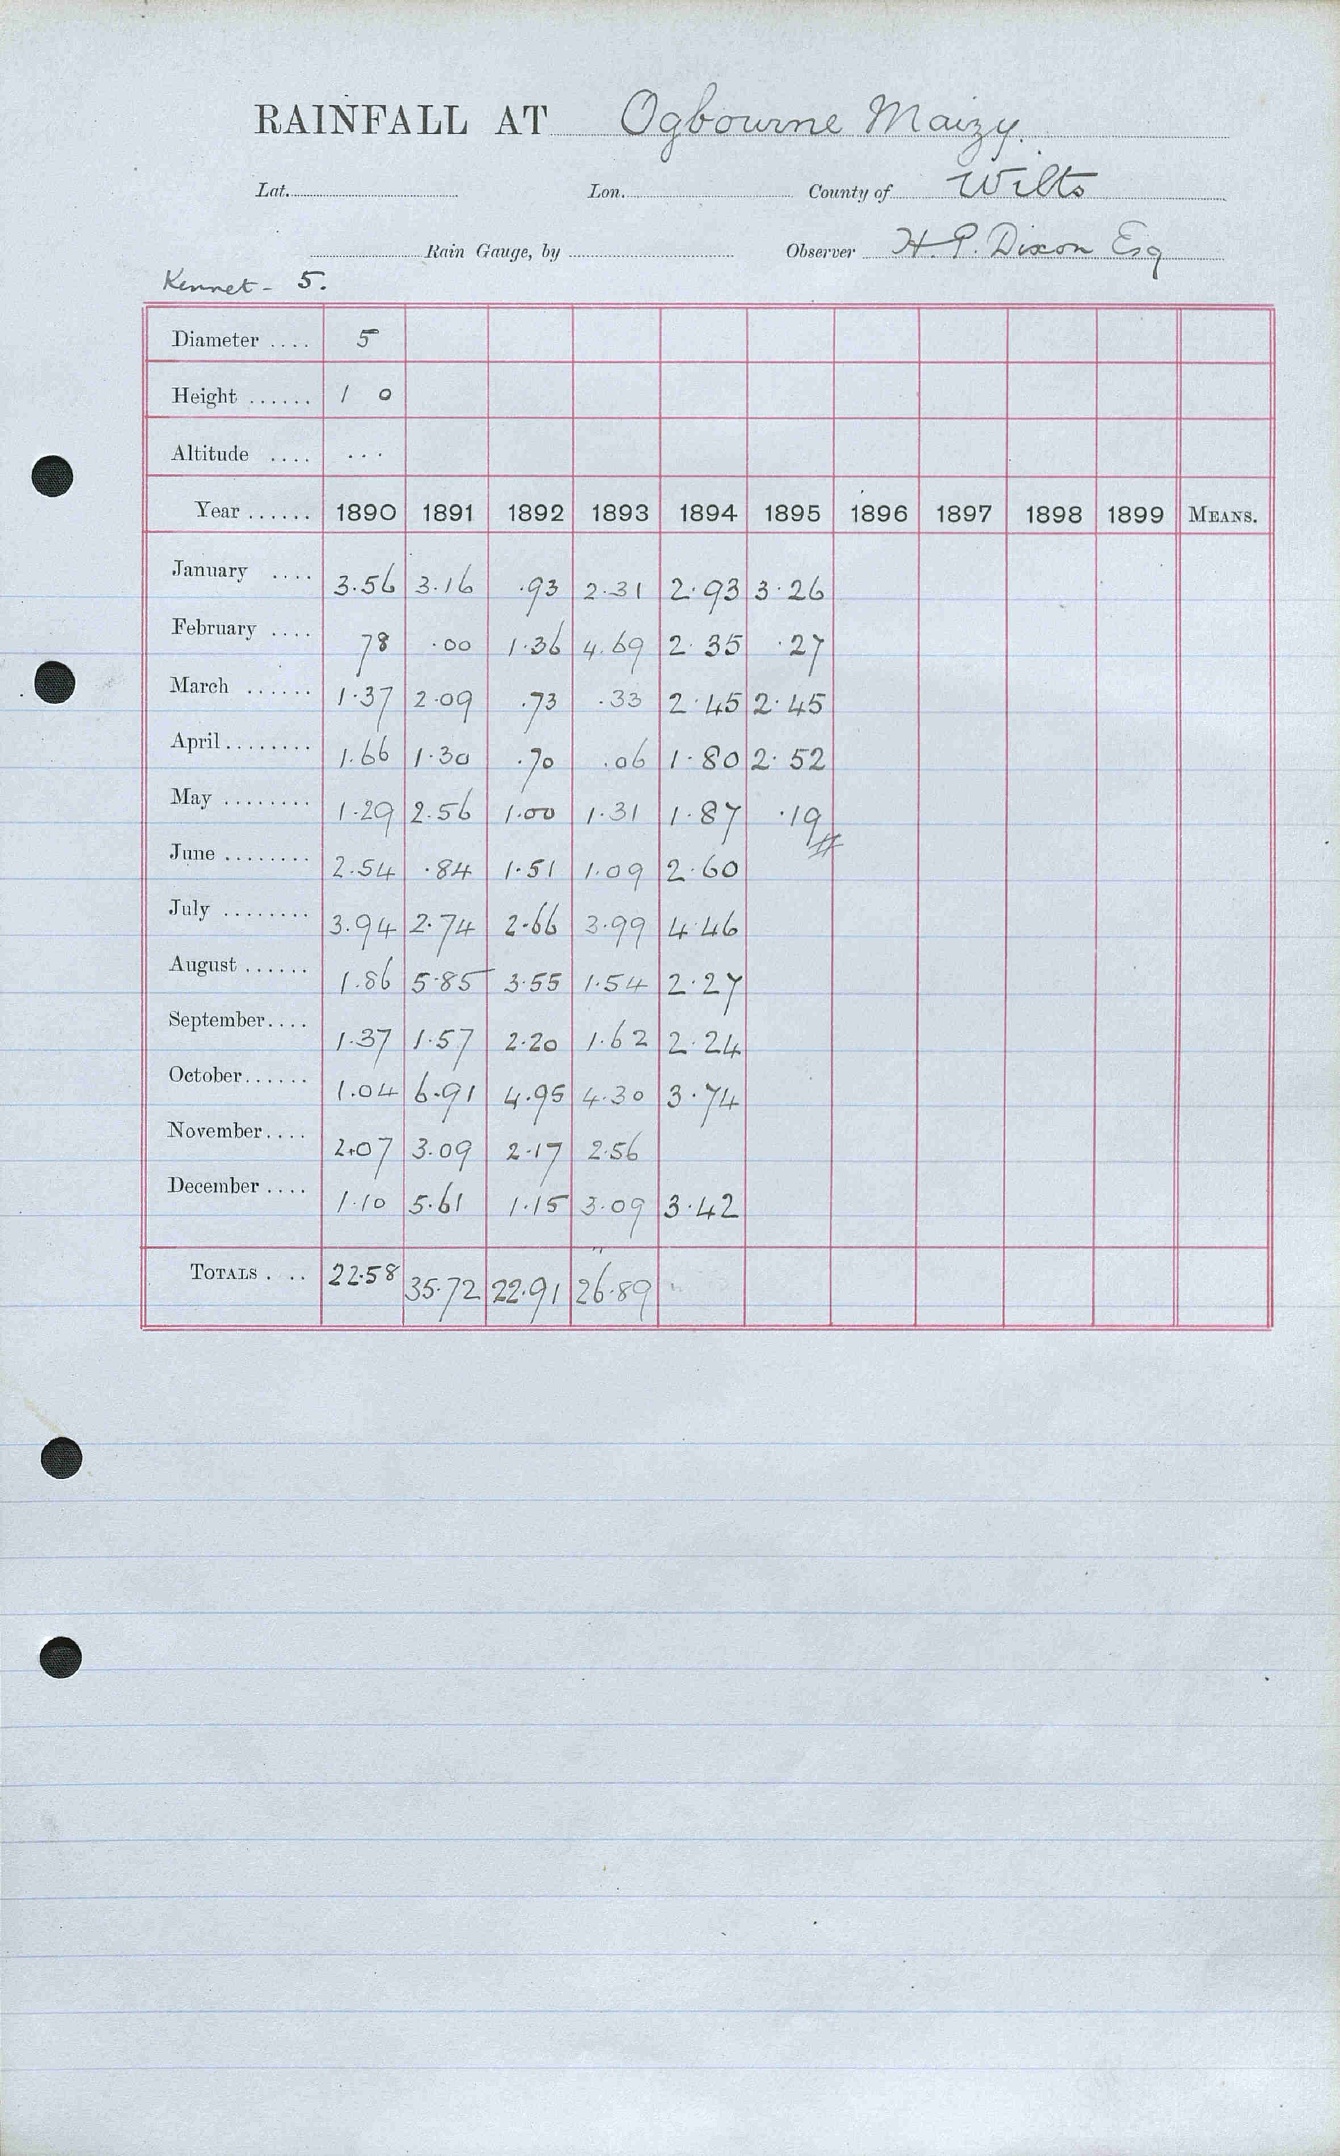 RAINFALL AT Ogbourne Maizy.
Lat. Lon. County of Wilts
Rain Gauge, by Observer H. P. Dixon Esq
Kennet - 5.
Diameter .... 5
Height ...... 1 0
Altitude .... ...
Year ...... 1890 1891 1892 1893 1894 1895 1896 1897 1898 1899 MEANS.
January .... 3.56 3.16 .93 2.31 2.93 3.26
February .... 78 .00 1.36 4.69 2.35 .27
March ...... 1.37 2.09 .73 .33 2.45 2.45
April ........ 1.66 1.30 .70 .06 1.80 2.52
May ........ 1.29 2.56 1.00 1.31 1.87 .19
June ........ 2.54 .84 1.51 1.09 2.60
July ........ 3.94 2.74 2.66 3.99 4.46
August ...... 1.86 5.85 3.55 1.54 2.27
September .... 1.37 1.57 2.20 1.62 2.24
October ...... 1.04 6.91 4.95 4.30 3.74
November .... 2.07 3.09 2.17 2.56
December .... 1.10 5.61 1.15 3.09 3.42
TOTALS .... 22.58 35.72 22.91 26.89